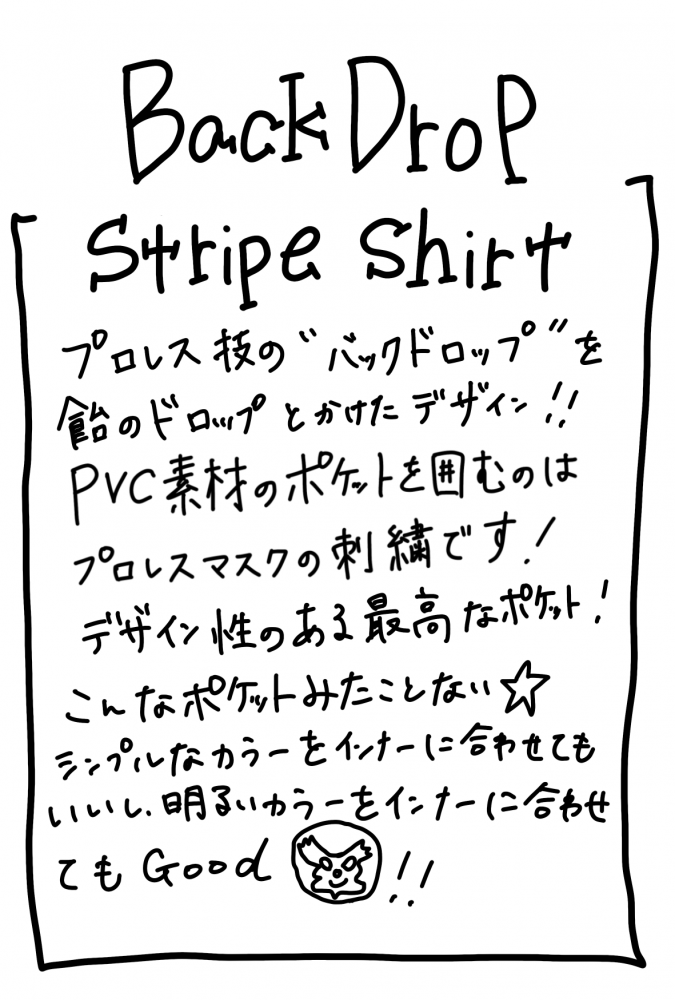 BackDrop
Stripe Shirt
プロレス技の“バックドロップ”を
飴のドロップとかけたデザイン!!
PVC素材のポケットを囲むのは
プロレスマスクの刺繍です!
デザイン性のある最高なポケット!
こんなポケットみたことない☆
シンプルなカラーをインナーに合わせても
いいし、明るいカラーをインナーに合わせ
てもGood!!